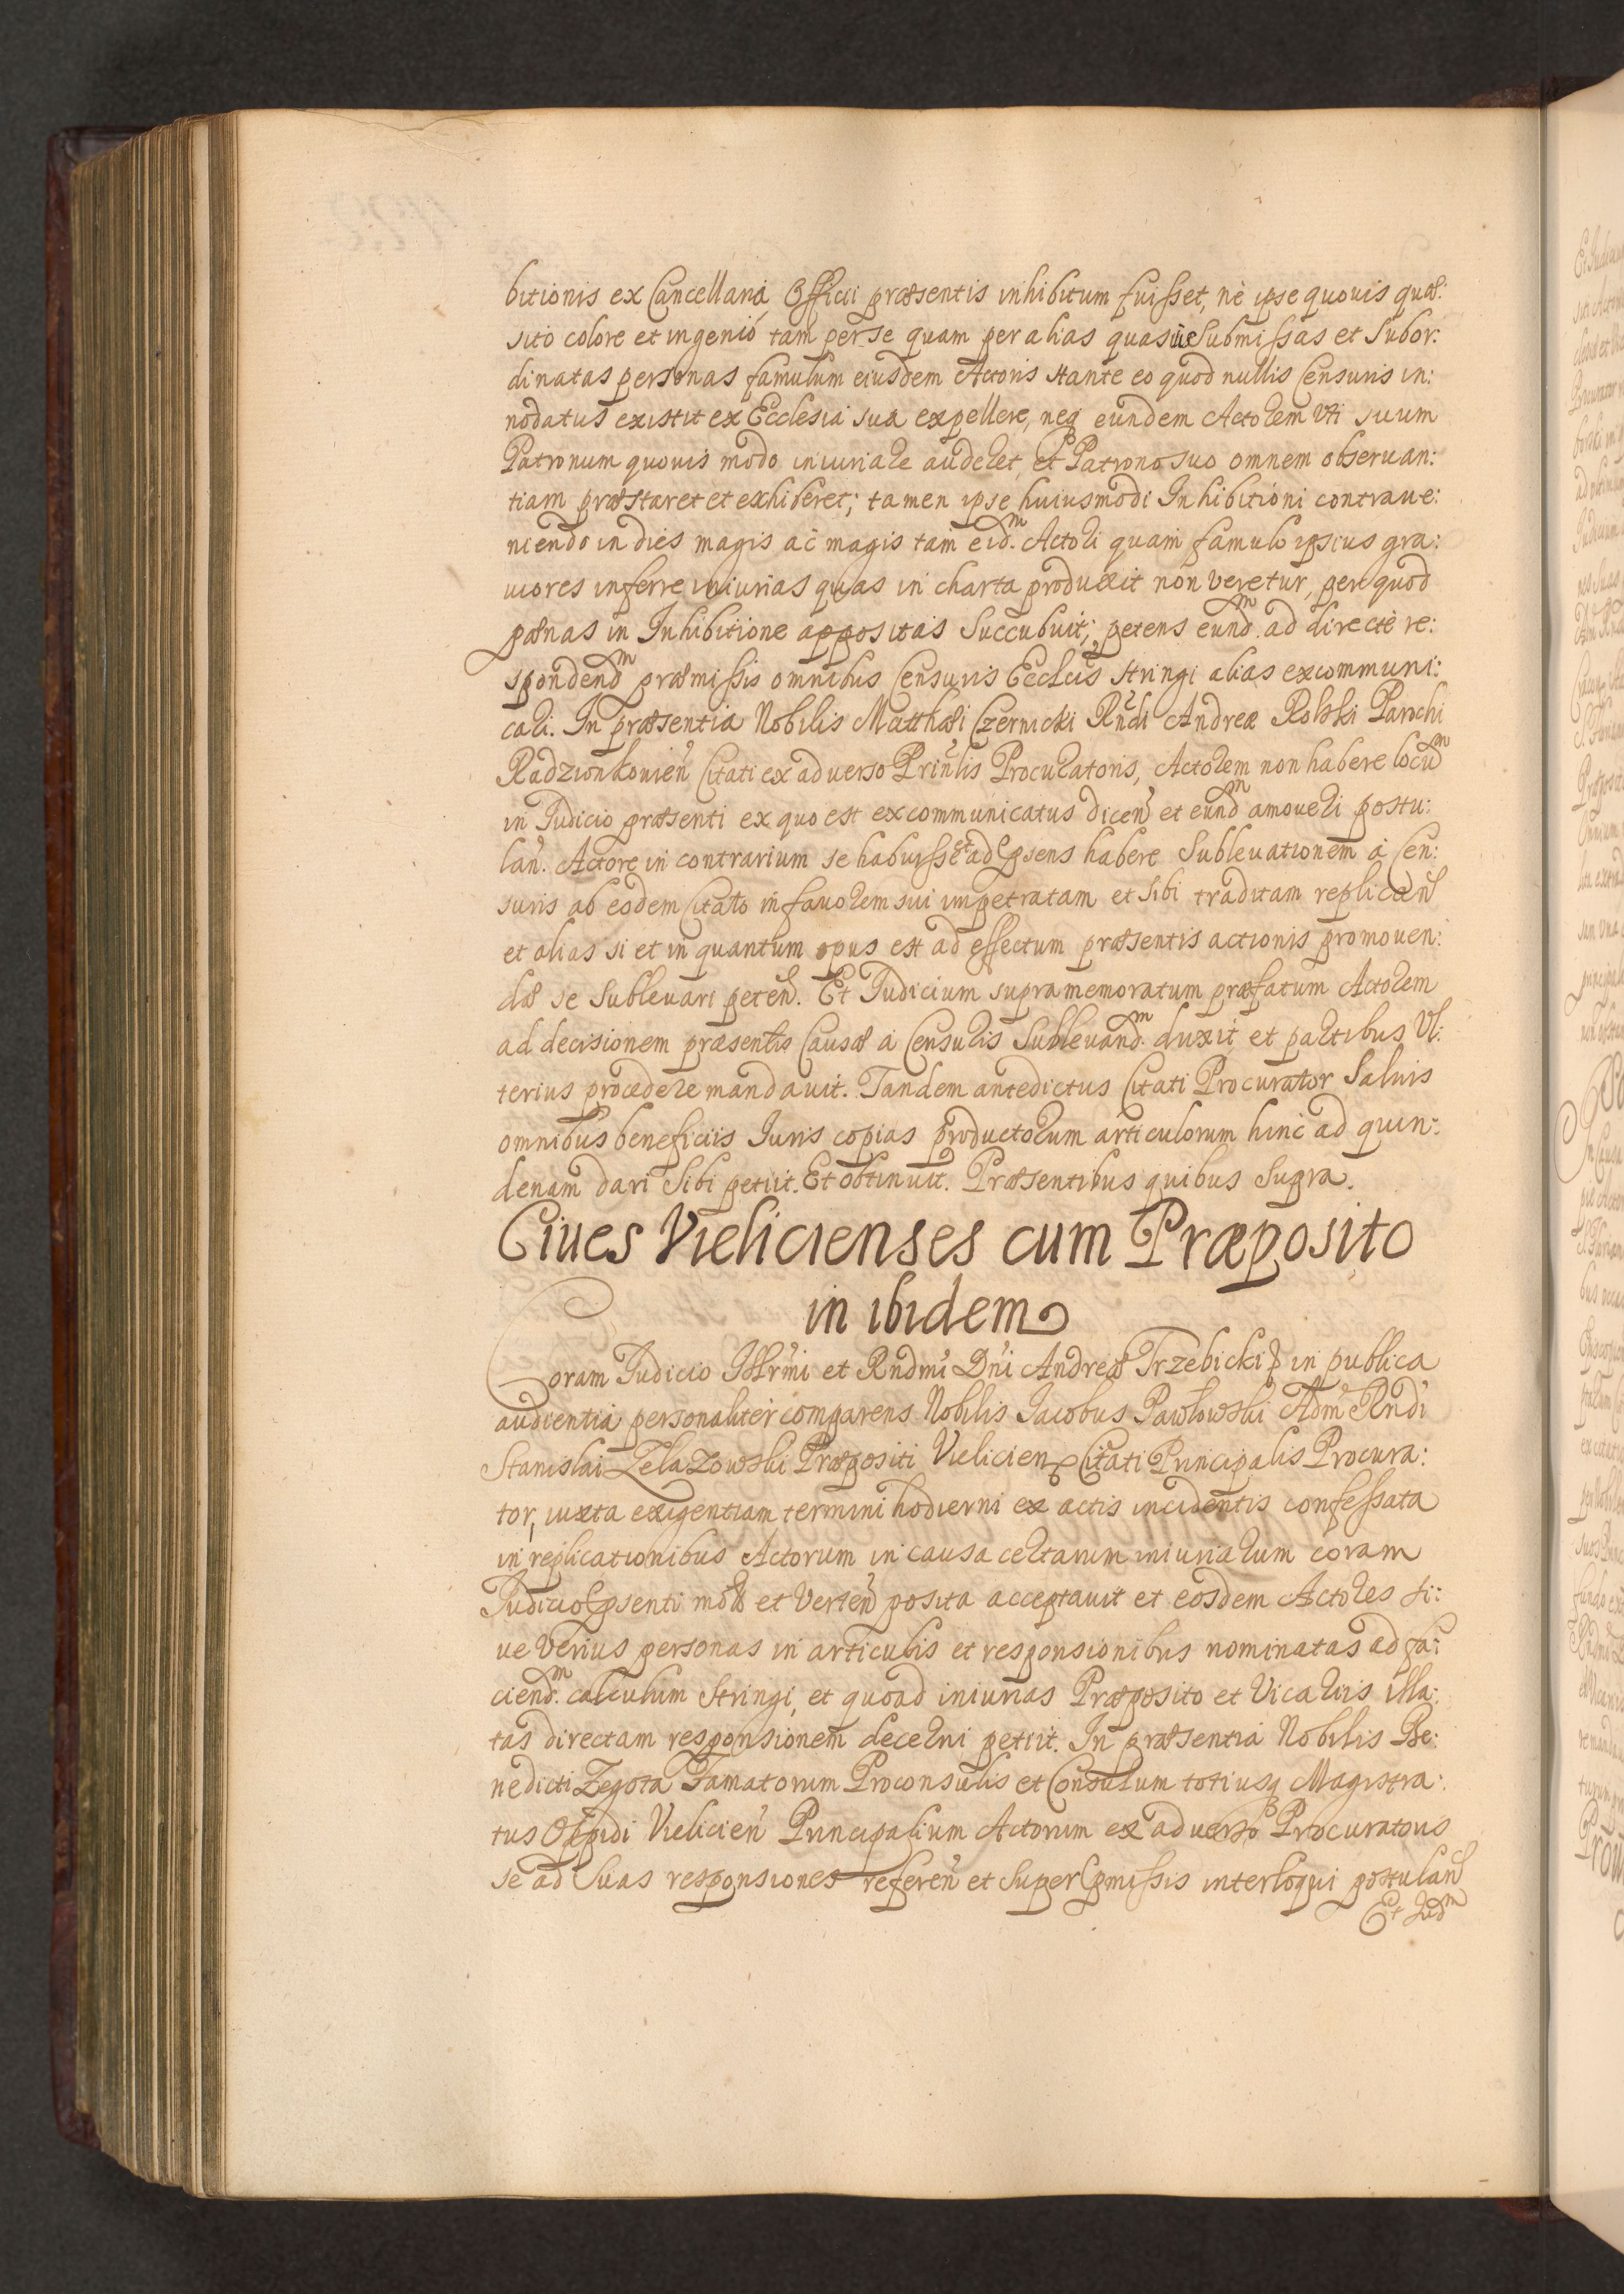 bitionis ex Cancellaria Officii præsentis inhibitum fuisset, nè ipse quouis quæ:
sito colore et ingenio tam per se quam per alias quasuis submissas et subor:
dinatas personas famulum eiusdem Actoris stante eo quod nullis Censuris in:
nodatus existit ex Ecclesia sua expellere, neq eundem Actorem vti suum
Patronum quouis modo iniuriare auderet, et Patrono suo omnem obseruan:
tiam præstaret et exhiberet; tamen ipse huiusmodi Inhibitioni contraue:
niendo in dies magis ac magis tam eidm. Actori quam famulo ipsius gra:
uiores inferre iniurias quas in charta produxit non veretur, per quod
pœnas in Inhibitione appositas succubuit; petens eundm. ad directè re:
spondendm præmissis omnibus Censuris Ecclcis stringi alias excommuni:
cari. In præsentia Nobilis Matthæi Czernicki Rndi Andreæ Rolski Parochi
Radzionkouien Citati ex aduerso Prinlis Procuratoris, Actorem non habere locum
in Judicio præsenti ex quo est excommunicatus dicen et eundm amoueri postu:
lan. Actore in contrarium se habuisse et ad psens habere subleuationem à Cen:
suris ab eodem Citato in fauorem sui impetratam et sibi traditam replican
et alias si et in quantum opus est ad effectum præsentis actionis promouen:
dæ se subleuari peten. Et Judicium supramemoratum præfatum Actorem
ad decisionem præsentis Causæ a Censuris subleuandm. duxit et partibus vl:
terius procedere mandauit. Tandem antedictus Citati Procurator saluis
omnibus beneficiis Iuris copias productorum articulorum hinc ad quin:
denam dari sibi petiit. Et obtinuit. Præsentibus quibus supra.
Ciues Vielicienses cum Præposito
in ibidem
Coram Judicio Illrmi et Rndmi Dni Andreæ Trzebicki in publica
audientia personaliter comparens Nobilis Jacobus Pawłowski Adm Rndi
Stanislai Zelazowski Præpositi Vielicien Citati Principalis Procura:
tor, iuxta exigentiam termini hodierni ex actis incidentis confessata
in replicationibus Actorum in causa certarum iniuriarum coram
Judicio psenti mota et verten posita acceptauit et eosdem Actores si:
ue verius personas in articulis et responsionibus nominatas ad fa:
ciendm. calculum stringi, et quoad iniurias Præposito et Vicariis illa:
tas directam responsionem decerni petiit. In præsentia Nobilis Be:
nedicti Zegota Famatorum Proconsulis et Consulum totiusq Magistra:
tus Oppidi Vielicien Principalium Actorum ex aduerso Procuratoris
se ad suas responsiones referen et super pmissis interloqui postulan
Et Judm